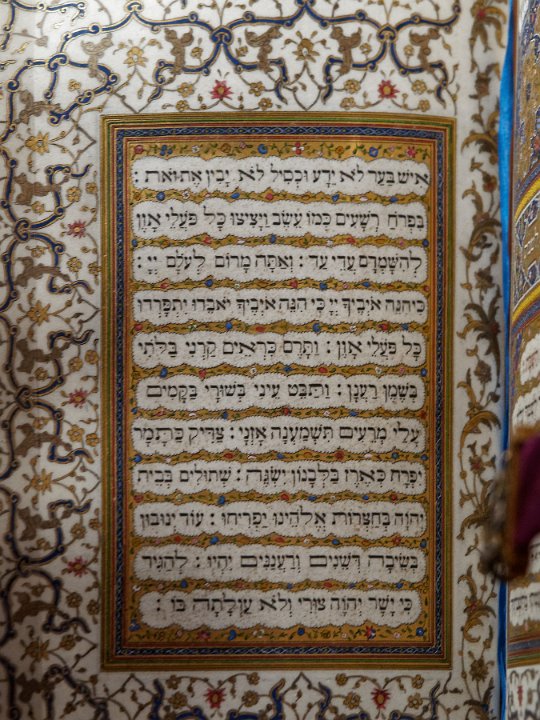 אִישׁ בַּעַר לֹא יֵדָע וּכְסִיל לֹא יָבִין אֶת זֹאת :
בִּפְרֹחַ רְשָׁעִים כְּמוֹ עֵשֶׂב וַיָּצִיצוּ כָּל פֹּעֲלֵי אָוֶן
לְהִשָּׁמְדָם עֲדֵי עַד : וְאַתָּה מָרוֹם לְעֹלָם יְיָ :
כִּי הִנֵּה אֹיְבֶיךָ יְיָ כִּי הִנֵּה אֹיְבֶיךָ יֹאבֵדוּ יִתְפָּרְדוּ
כָּל פֹּעֲלֵי אָוֶן : וַתָּרֶם כִּרְאֵים קַרְנִי בַּלֹּתִי
בְּשֶׁמֶן רַעֲנָן : וַתַּבֵּט עֵינִי בְּשׁוּרָי בַּקָּמִים
עָלַי מְרֵעִים תִּשְׁמַעְנָה אָזְנָי : צַדִּיק כַּתָּמָר
יִפְרָח כְּאֶרֶז בַּלְּבָנוֹן יִשְׂגֶּה : שְׁתוּלִים בְּבֵית
יְהוָה בְּחַצְרוֹת אֱלֹהֵינוּ יַפְרִיחוּ : עוֹד יְנוּבוּן
בְּשֵׂיבָה דְּשֵׁנִים וְרַעֲנַנִּים יִהְיוּ : לְהַגִּיד
כִּי יָשָׁר יְהוָה צוּרִי וְלֹא עַוְלָתָה בּוֹ :